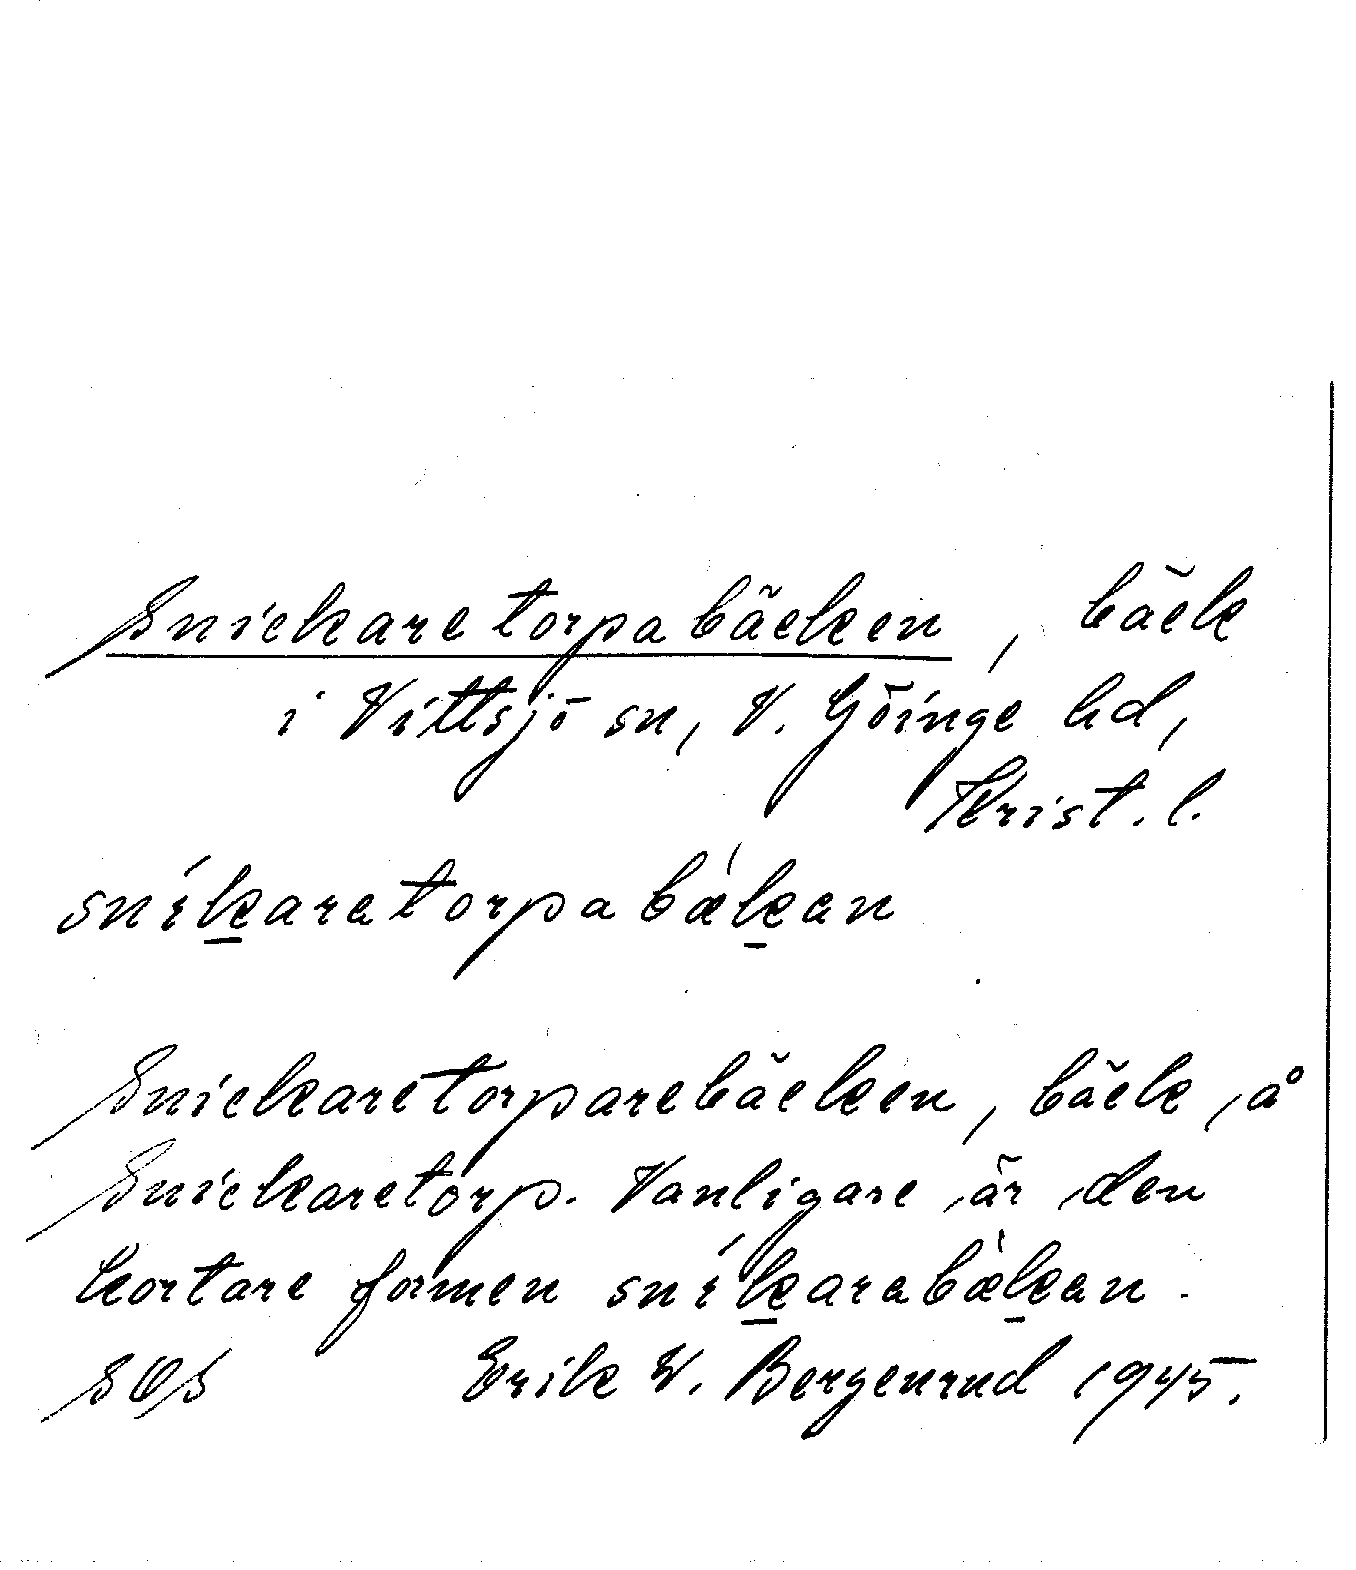 Snickaretorpabäcken, bäck
i Vittsjö sn, V. Göinge hd,
Krist. l.
sníḵaratorpabæ̀ḵan
Snickaretorparebäcken, bäck, å
Snickaretorp. Vanligare är den
kortare formen sníḵarabæ̀ḵan.
SOS Erik W. Bergenrud 1945.